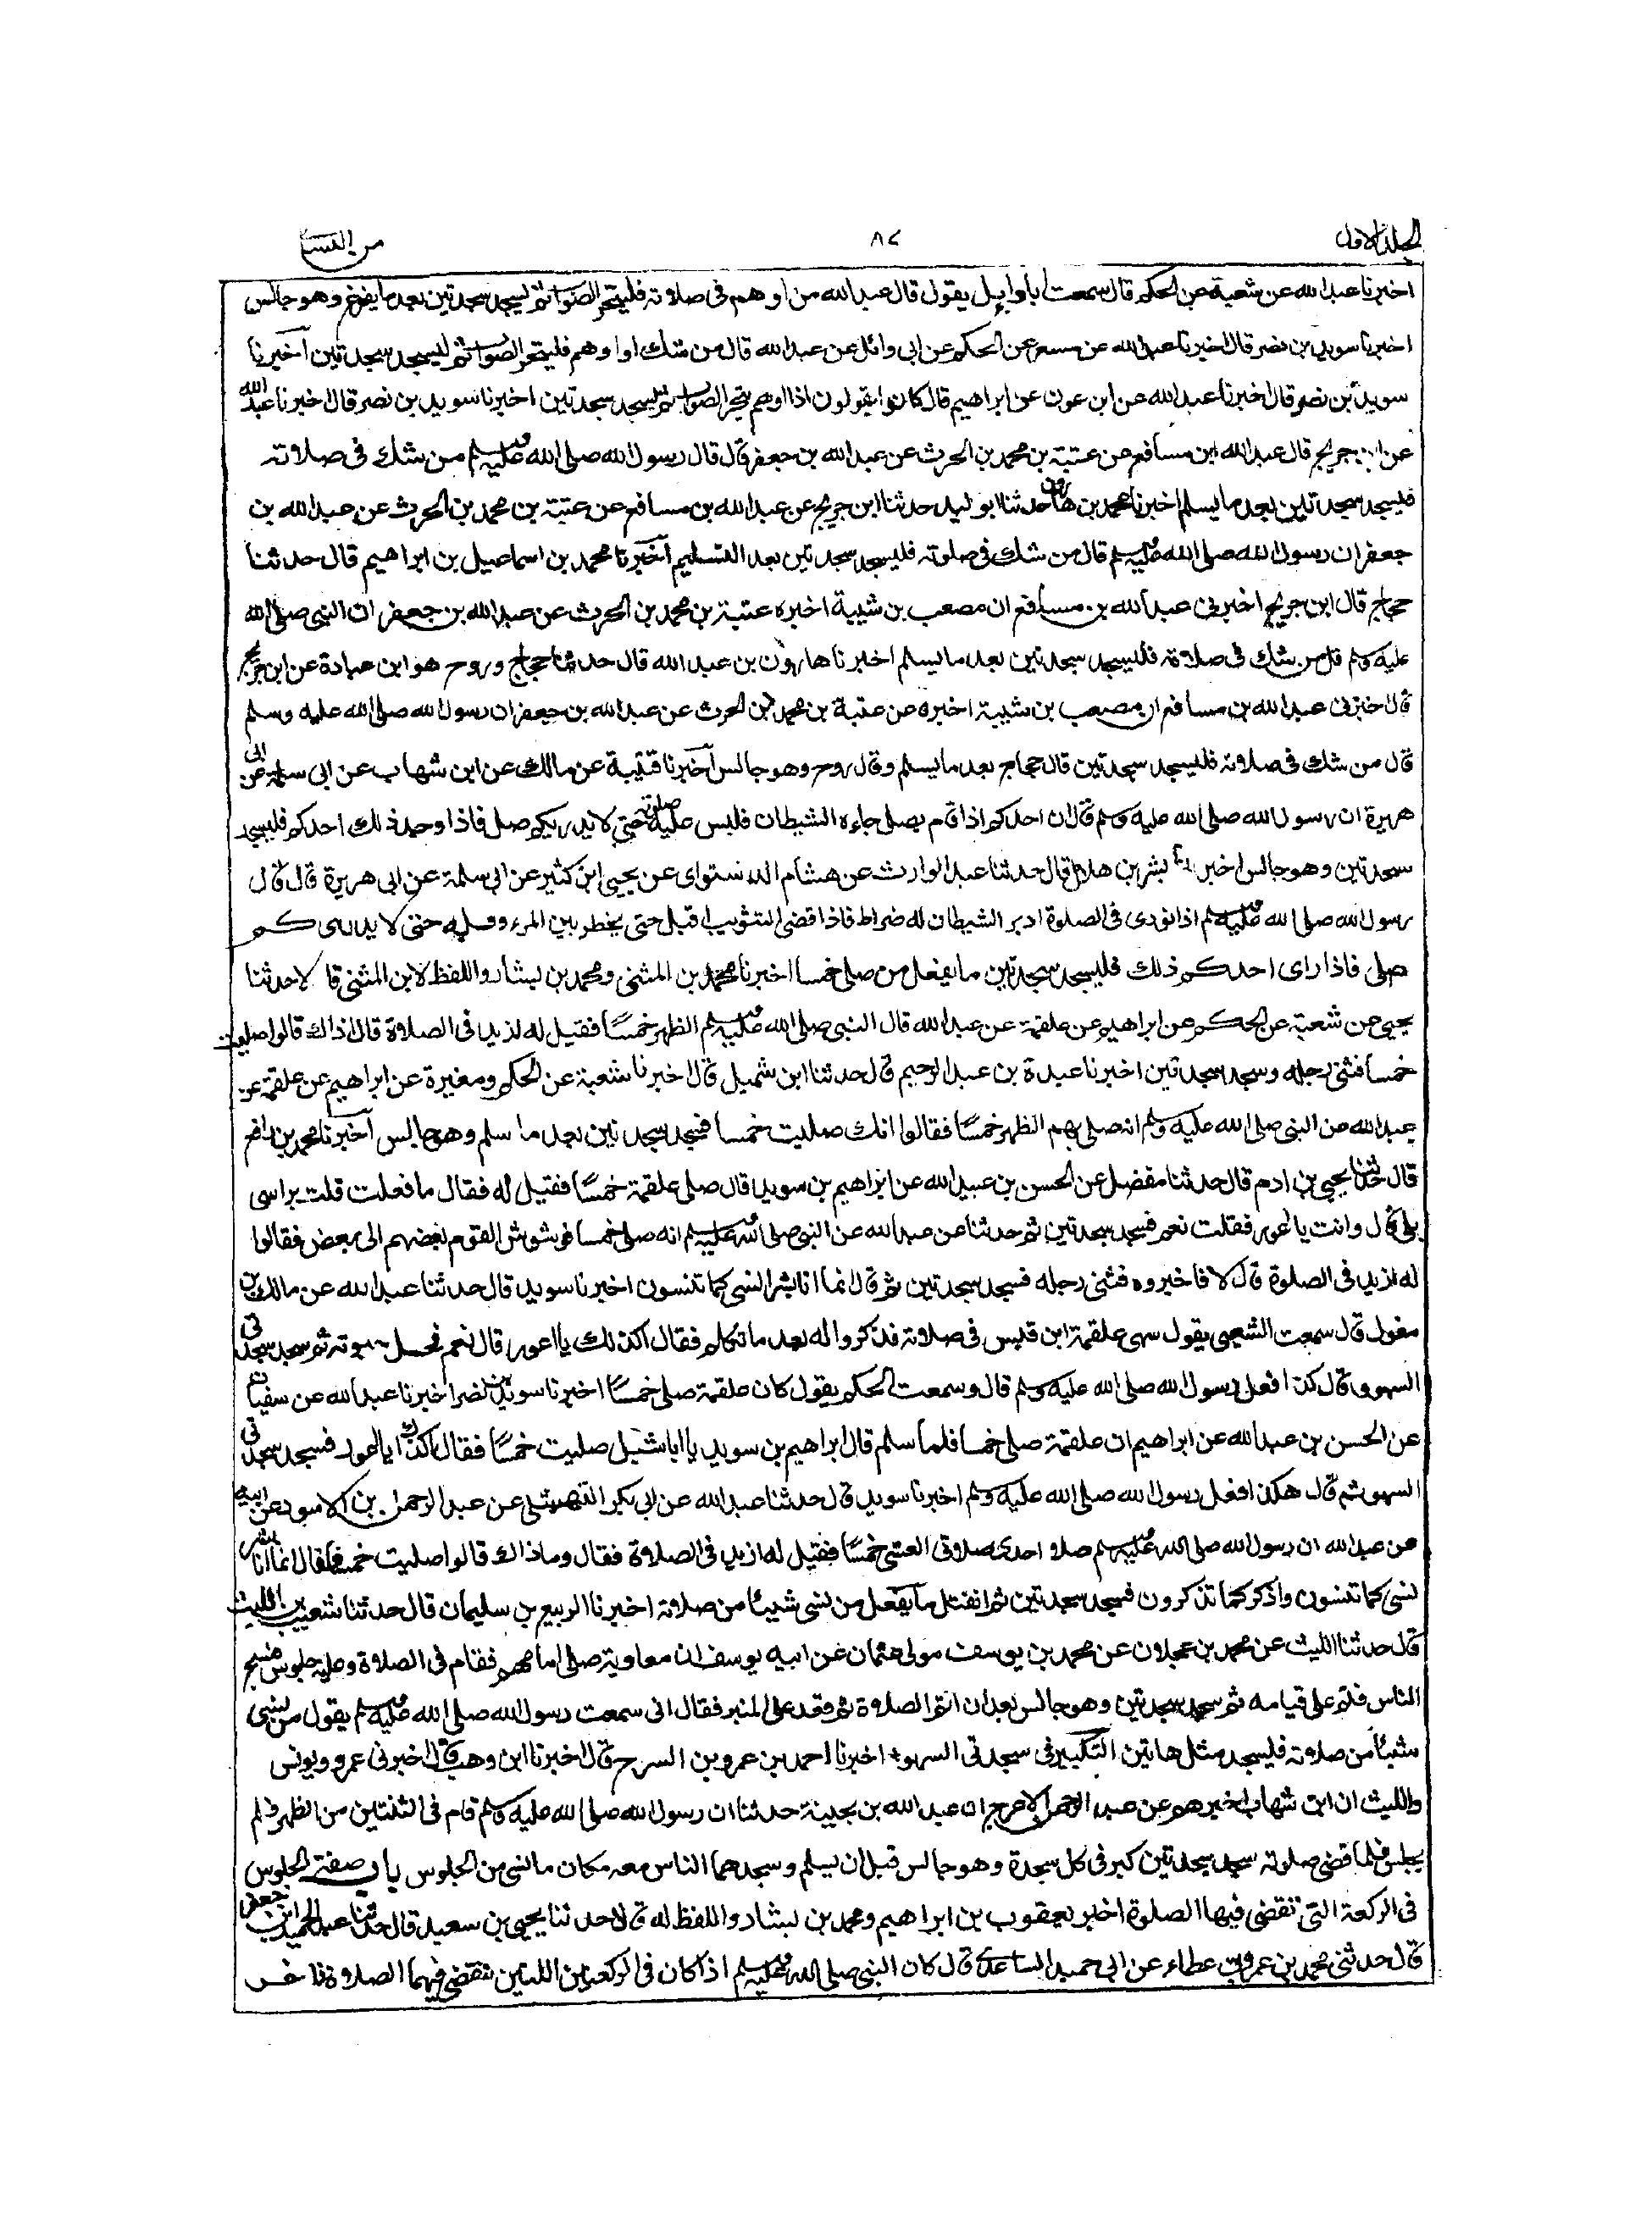 الجلد الاول
٨٢
من النسائ
اخبرنا عبد الله عن شعبة عن الحكم قال سمعت ابا وايل يقول قال عبد الله من اوهم فى صلاته فليتحر الصواب ثم ليسجد سجدتين بعد ما يفرغ وهو جالس
اخبرنا سويد بن نصر قال اخبرنا عبد الله عن مسعر عن الحكم عن ابى وائل عن عبد الله قال من شك او اوهم فليتحر الصواب ثم ليسجد سجدتين اخبرنا
سويد بن نصر قال اخبرنا عبد الله عن ابن عون عن ابراهيم قال كانوا يقولون اذا اوهم يتحر الصواب ثم يسجد سجدتين اخبرنا سويد بن نصر قال اخبرنا عبد الله
عن ابن جريج قال عبد الله ابن مسافع عن عتبة بن محمد بن الحرث عن عبد الله بن جعفر قال قال رسول الله صلى الله عليه وسلم من شك فى صلاته
فليسجد سجدتين بعد ما يسلم اخبرنا محمد بن هارون حدثنا ابوليد حدثنا ابن جريج عن عبد الله بن مسافع عن عتبة بن محمد بن الحرث عن عبد الله بن
جعفر ان رسول الله صلى الله عليه وسلم قال من شك فى صلوته فليسجد سجدتين بعد التسليم اخبرنا محمد بن اسماعيل بن ابراهيم قال حدثنا
حجاج قال ابن جريج اخبرنى عبد الله بن مسافع ان مصعب بن شيبة اخبره عتبة بن محمد بن الحرث عن عبد الله بن جعفر ان النبى صلى الله
عليه وسلم قال من شك فى صلاته فليسجد سجدتين بعد ما يسلم اخبرنا هارون بن عبد الله قال حدثنا حجاج وروح هو ابن عبادة عن ابن جريج
قال اخبرنى عبد الله بن مسافع ان مصعب بن شيبة اخبره عن عتبة بن محمد بن الحرث عن عبد الله بن جعفر ان رسول الله صلى الله عليه وسلم
قال من شك فى صلاته فليسجد سجدتين قال حجاج بعد ما يسلم وقال روح وهو جالس اخبرنا قتيبة عن مالك عن ابن شهاب عن ابى سلمة عن ابى
هريرة ان رسول الله صلى الله عليه وسلم قال ان احدكم اذا قام يصلى جاءه الشيطان فلبس عليه صلوته حتى لا يدرى كم صلى فاذا وجد ذلك احدكم فليسجد
سجدتين وهو جالس اخبرنا بشر بن هلال قال حدثنا عبد الوارث عن هشام الدستوائى عن يحيى ابن كثير عن ابى سلمة عن ابى هريرة قال قال
رسول الله صلى الله عليه وسلم اذا نودى فى الصلوة ادبر الشيطان له ضراط فاذا قضى التثويب اقبل حتى يخطر بين المرء وقلبه حتى لا يدرى كم
صلى فاذا راى احدكم ذلك فليسجد سجدتين ما يفعل من صلى خمسا اخبرنا محمد بن المثنى ومحمد بن بشار واللفظ لابن المثنى قالا حدثنا
يحيى عن شعبة عن الحكم عن ابراهيم عن علقمة عن عبد الله قال النبى صلى الله عليه وسلم الظهر خمسًا فقيل له ازيد فى الصلاة قال وذاك قالوا صليت
خمسا فثنى رجله وسجد سجدتين اخبرنا عبدة بن عبد الرحيم قال حدثنا ابن شميل قال اخبرنا شعبة عن الحكم ومغيرة عن ابراهيم عن علقمة عن
عبد الله عن النبى صلى الله عليه وسلم انه صلى بهم الظهر خمسًا فقالوا انك صليت خمسا فسجد سجدتين بعد ما سلم وهو جالس اخبرنا محمد بن رافع
قال حدثنا يحيى بن ادم قال حدثنا مفضل عن الحسن بن عبيد الله عن ابراهيم بن سويد قال صلى علقمة خمسًا فقيل له فقال ما فعلت قلت براسى
بلى قال وانت يا اعور فقلت نعم فسجد سجدتين ثم حدثنا عن عبد الله عن النبى صلى الله عليه وسلم انه صلى خمسا فوشوش القوم بعضهم الى بعض فقالوا
له ازيد فى الصلوة قال لا فاخبروه فثنى رجله فسجد سجدتين ثم قال انما انا بشر انسى كما تنسون اخبرنا سويد قال حدثنا عبد الله عن مالك بن
مغول قال سمعت الشعبى يقول سهى علقمة ابن قيس فى صلاته فذكروا له بعد ما تكلم فقال اكذلك يا اعور قال نعم فحل حبوته ثم سجد سجدتى
السهو وقال كذا فعل رسول الله صلى الله عليه وسلم قال وسمعت الحكم يقول كان علقمة صلى خمسًا اخبرنا سويد بن نصر اخبرنا عبد الله عن سفيان
عن الحسن بن عبد الله عن ابراهيم ان علقمة صلى خمسا فلما سلم قال ابراهيم بن سويد يا ابا شبل صليت خمسًا فقال اكذلك يا اعور فسجد سجدتى
السهو ثم قال هكذا فعل رسول الله صلى الله عليه وسلم اخبرنا سويد قال حدثنا عبد الله عن ابى بكر النهشلى عن عبد الرحمن بن الاسود عن ابيه
عن عبد الله ان رسول الله صلى الله عليه وسلم صلى احدى صلاتى العشى خمسًا فقيل له ازيد فى الصلاة فقال وما ذاك قالوا صليت خمسا فقال انما انا بشر
انسى كما تنسون واذكر كما تذكرون فسجد سجدتين ثم انفتل ما يفعل من نسى شيئا من صلاته اخبرنا الربيع بن سليمان قال حدثنا شعيب بن الليث
قال حدثنا الليث عن محمد بن عجلان عن محمد بن يوسف مولى عثمان عن ابيه يوسف ان معاوية صلى امامهم فقام فى الصلاة وعليه جلوس فسبح
الناس فتم على قيامه ثم سجد سجدتين وهو جالس بعد ان اتم الصلاة ثم قعد على المنبر فقال انى سمعت رسول الله صلى الله عليه وسلم يقول من نسى
شيئا من صلاته فليسجد مثل هاتين التكبير فى سجدتى السهو اخبرنا احمد بن عمرو بن السرح قال اخبرنا ابن وهب قال اخبرنى عمرو ويونس
والليث ان ابن شهاب اخبرهم عن عبد الرحمن الاعرج ان عبد الله بن بحينة حدثنا ان رسول الله صلى الله عليه وسلم قام فى الثنتين من الظهر فلم
يجلس فلما قضى صلوته سجد سجدتين كبر فى كل سجدة وهو جالس قبل ان يسلم وسجدهما الناس معه مكان ما نسى من الجلوس باب صفة الجلوس
فى الركعة التى تنقضى فيها الصلوة اخبر يعقوب بن ابراهيم ومحمد بن بشار واللفظ له قالا حدثنا يحيى بن سعيد قال حدثنا عبد الحميد ابن جعفر
قال حدثنى محمد بن عمرو بن عطاء عن ابى حميد الساعدى قال كان النبى صلى الله عليه وسلم اذا كان فى الركعتين اللتين تنقضى فيهما الصلاة اخر